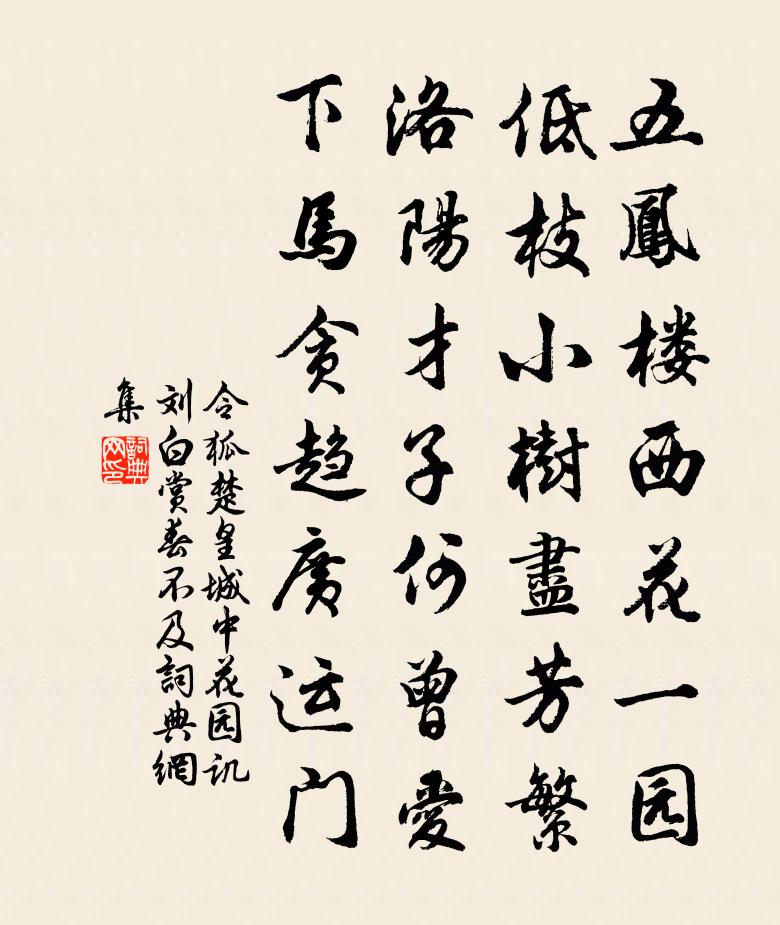 五鳳楼西花一园
低枝小樹盡芳繁
洛陽才子何曾愛
下馬贪趋廣运门
令狐楚皇城中花园讥
刘白赏春不及詞典網
集
詞典
网印